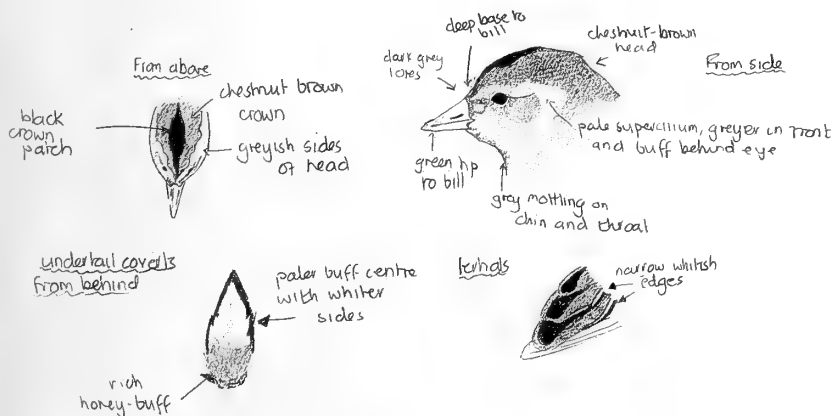 From above
black
crown
patch
chestnut brown
crown
greyish sides
of head
deep base to
bill
dark grey
lores
chestnut-brown
head
From side
pale supercilium, greyer in front
and buff behind eye
green tip
to bill
grey mottling on
chin and throat
undertail coverts
from behind
paler buff centre
with whiter
sides
rich
honey-buff
tertials
narrow whitish
edges